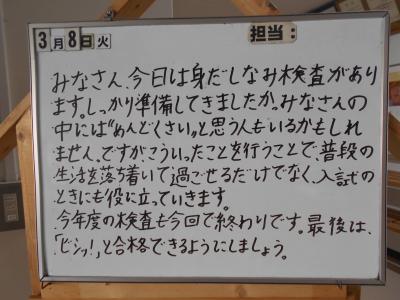 3月8日火 担当:
みなさん、今日は身だしなみ検査があり
ます。しっかり準備してきましたか。みなさんの
中には"めんどくさい"と思う人もいるかもしれ
ません。ですがこういったことを行うことで、普段の
生活を落ち着いて過ごせるだけでなく、入試の
ときにも役に立っていきます。
今年度の検査も今回で終わりです。最後は、
「ビシッ!」と合格できるようにしましょう。